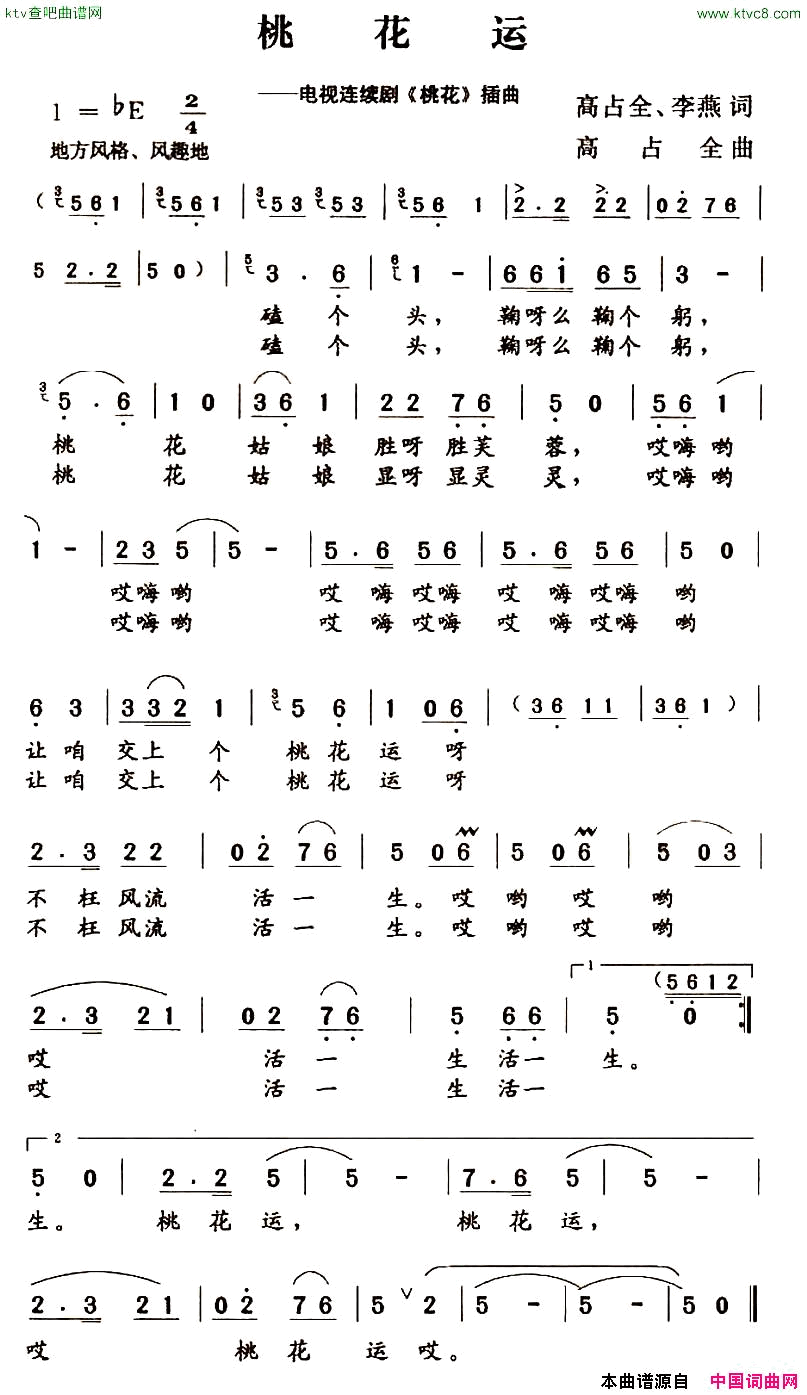 ktv查吧曲谱网
www.ktvc8.com
桃 花 运
——电视连续剧《桃花》插曲
1 = ♭E 2/4
高占全、李燕 词
地方风格、风趣地
高 占 全 曲
( 5 6 1 | 5 6 1 | 5 3 5 3 | 5 6 1 | 2 . 2 2 . 2 | 0 2 7 6 |
5 2 . 2 | 5 0 ) | 3 . 6 | 1 - | 6 6 1 6 5 | 3 - |
磕 个 头, 鞠呀么 鞠个 躬,
磕 个 头, 鞠呀么 鞠个 躬,
5 . 6 | 1 0 | 3 6 1 | 2 2 7 6 | 5 0 | 5 6 1 |
桃 花 姑 娘 胜呀 胜芙 蓉, 哎嗨哟
桃 花 姑 娘 显呀 显灵 灵, 哎嗨哟
1 - | 2 3 5 | 5 - | 5 . 6 5 6 | 5 . 6 5 6 | 5 0 |
哎嗨哟 哎 嗨 哎嗨 哎 嗨 哎嗨 哟
哎嗨哟 哎 嗨 哎嗨 哎 嗨 哎嗨 哟
6 3 | 3 3 2 1 | 5 6 | 1 0 6 | ( 3 6 1 1 | 3 6 1 ) |
让 咱 交上 个 桃 花 运 呀
让 咱 交上 个 桃 花 运 呀
2 . 3 2 2 | 0 2 7 6 | 5 0 6 | 5 0 6 | 5 0 3 |
不 枉 风流 活 一 生。 哎 哟 哎 哟
不 枉 风流 活 一 生。 哎 哟 哎 哟
1
2 . 3 2 1 | 0 2 7 6 | 5 6 6 | 5 0 ( 5 6 1 2 :||
哎 活 一 生 活一 生。
哎 活 一 生 活一
2
5 0 | 2 . 2 5 | 5 - | 7 . 6 5 | 5 - |
生。 桃 花 运, 桃 花 运,
2 . 3 2 1 | 0 2 7 6 | 5 ∨ 2 | 5 - | 5 - | 5 0 ||
哎 桃 花 运 哎。
本曲谱源自 中国词曲网